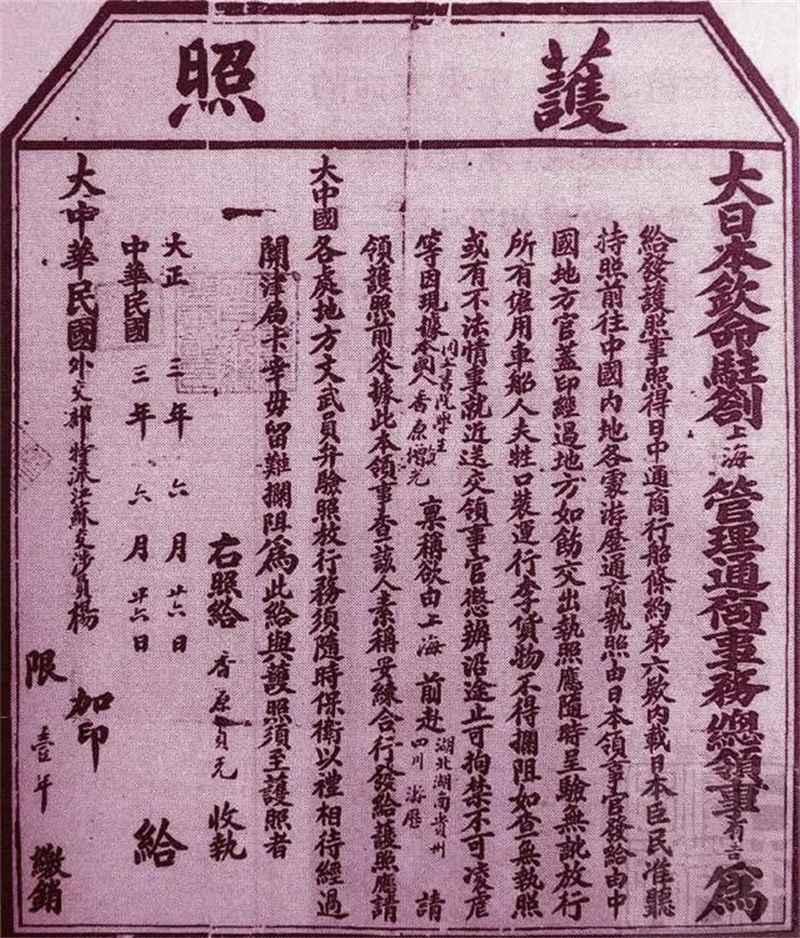 護照
大日本欽命駐劄上海管理通商事務總領事有吉為
給發護照事照得日中通商行船條約第六款內載日本臣民准聽
持照前往中國內地各處游歷通商執照由日本領事官發給由中
國地方官蓋印經過地方如飭交出執照應隨時呈驗無訛放行
所有僱用車船人夫牲口裝運行李貨物不得攔阻如查無執照
或有不法情事就近送交領事官懲辦沿途止可拘禁不可凌虐
等因現據本國人同文書院學生香原增元稟稱欲由上海前赴湖北湖南貴州四川游歷請
領護照前來據此本領事查該人素稱妥練合行發給護照應請
大中國各處地方文武員弁驗照放行務須隨時保衛以禮相待經過
關津局卡幸毋留難攔阻為此給與護照須至護照者
一
右照給香原元收執
大正三年六月廿六日
中華民國三年六月廿六日給
大中華民國外交部特派江蘇交涉員楊加印
限壹年繳銷